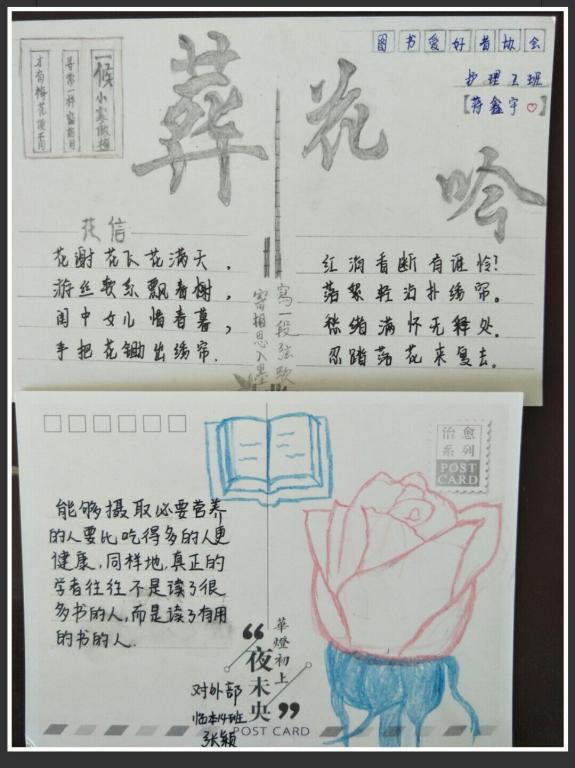 图书爱好者协会
护理2班
[蒋鑫宇♡]
寻常一样窗前月
才有梅花便不同
葬花吟
花信
花谢花飞花满天，
游丝软系飘春榭，
闺中女儿惜春暮，
手把花锄出绣帘.
寫一段弦歌
寄相思入墨
红消香断有谁怜?
落絮轻沾扑绣帘。
愁绪满怀无释处。
忍踏落花来复去。
治愈
系列
POST
CARD
能够摄取必要营养
的人要比吃得多的人更
健康,同样地,真正的
学者往往不是读了很
多书的人,而是读了有用
的书的人.
華燈初上
“夜未央”
对外部
临本14班
张颖
POST CARD